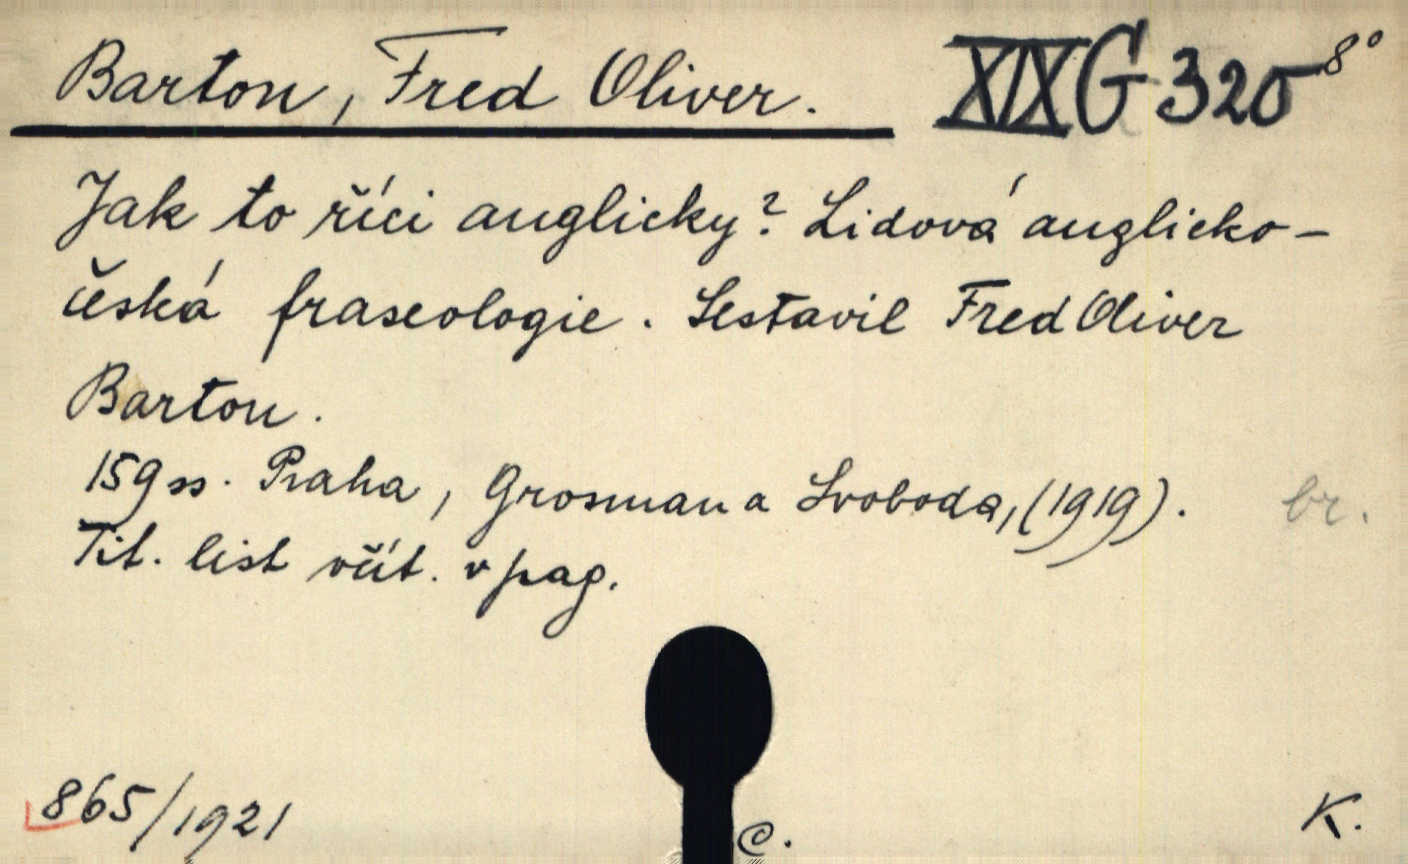 Barton, Fred Oliver. XIX G 320 8°
Jak to říci anglicky? Lidová anglicko-
česká fraseologie. Sestavil Fred Oliver
Barton.
159 ss. Praha, Grosman a Svoboda, (1919). br.
Tit. list včít. v pag.
865/1921 C. K.